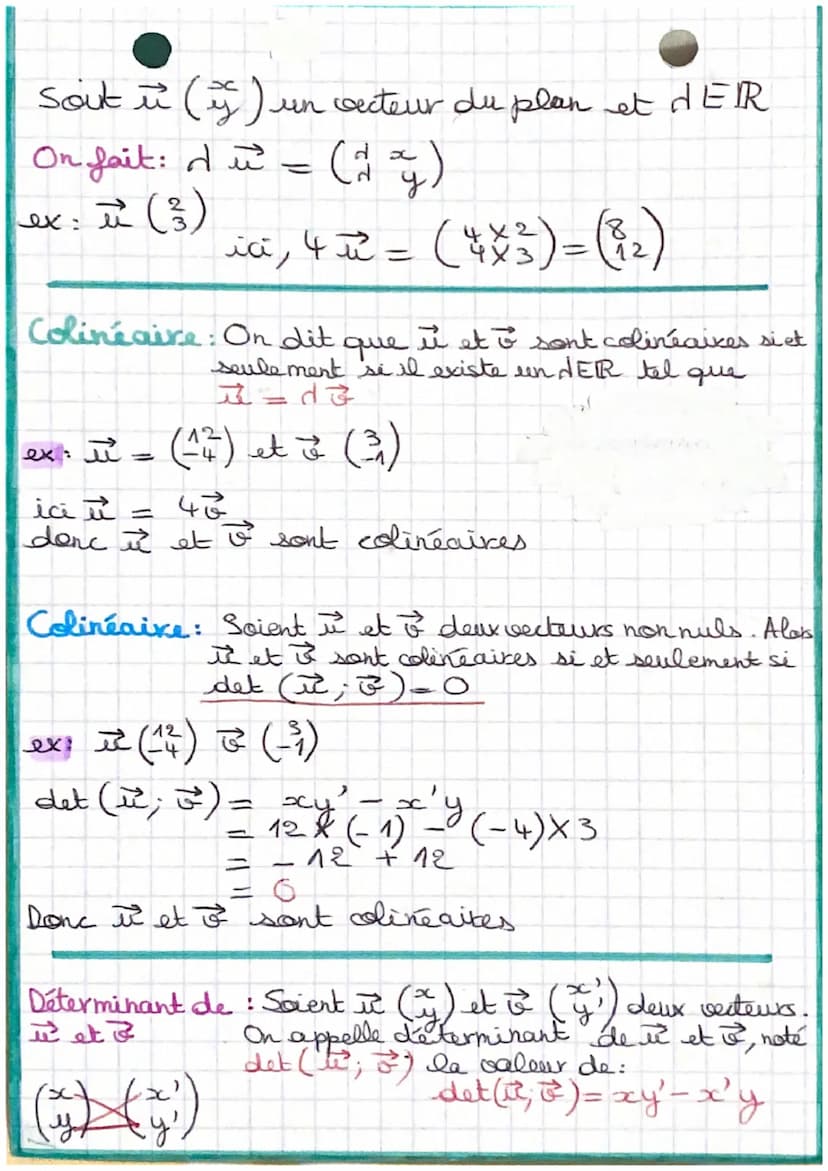 Soit u⃗ (x y) un vecteur du plan et d ∈ ℝ
On fait : d u⃗ = (d x d y)
ex : u⃗ (2 3)
ici, 4 u⃗ = (4×2 4×3) = (8 12)
Colinéaire : On dit que u⃗ et v⃗ sont colinéaires si et
seulement si il existe un d ∈ ℝ tel que
u⃗ = d v⃗
ex : u⃗ = (12 -4) et v⃗ (3 -1)
ici u⃗ = 4v⃗
donc u⃗ et v⃗ sont colinéaires
Colinéaire : Soient u⃗ et v⃗ deux vecteurs non nuls. Alors
u⃗ et v⃗ sont colinéaires si et seulement si
det (u⃗ ; v⃗) = 0
ex : u⃗ (12 -4) v⃗ (3 -1)
det (u⃗ ; v⃗) = xy' - x'y
= 12 × (-1) - (-4) × 3
= -12 + 12
= 0
Donc u⃗ et v⃗ sont colinéaires
Déterminant de : Soient u⃗ (x y) et v⃗ (x' y') deux vecteurs.
u⃗ et v⃗ On appelle déterminant de u⃗ et v⃗, noté
det (u⃗ ; v⃗) la valeur de :
det(u⃗ ; v⃗) = xy' - x'y
(x y) (x' y')